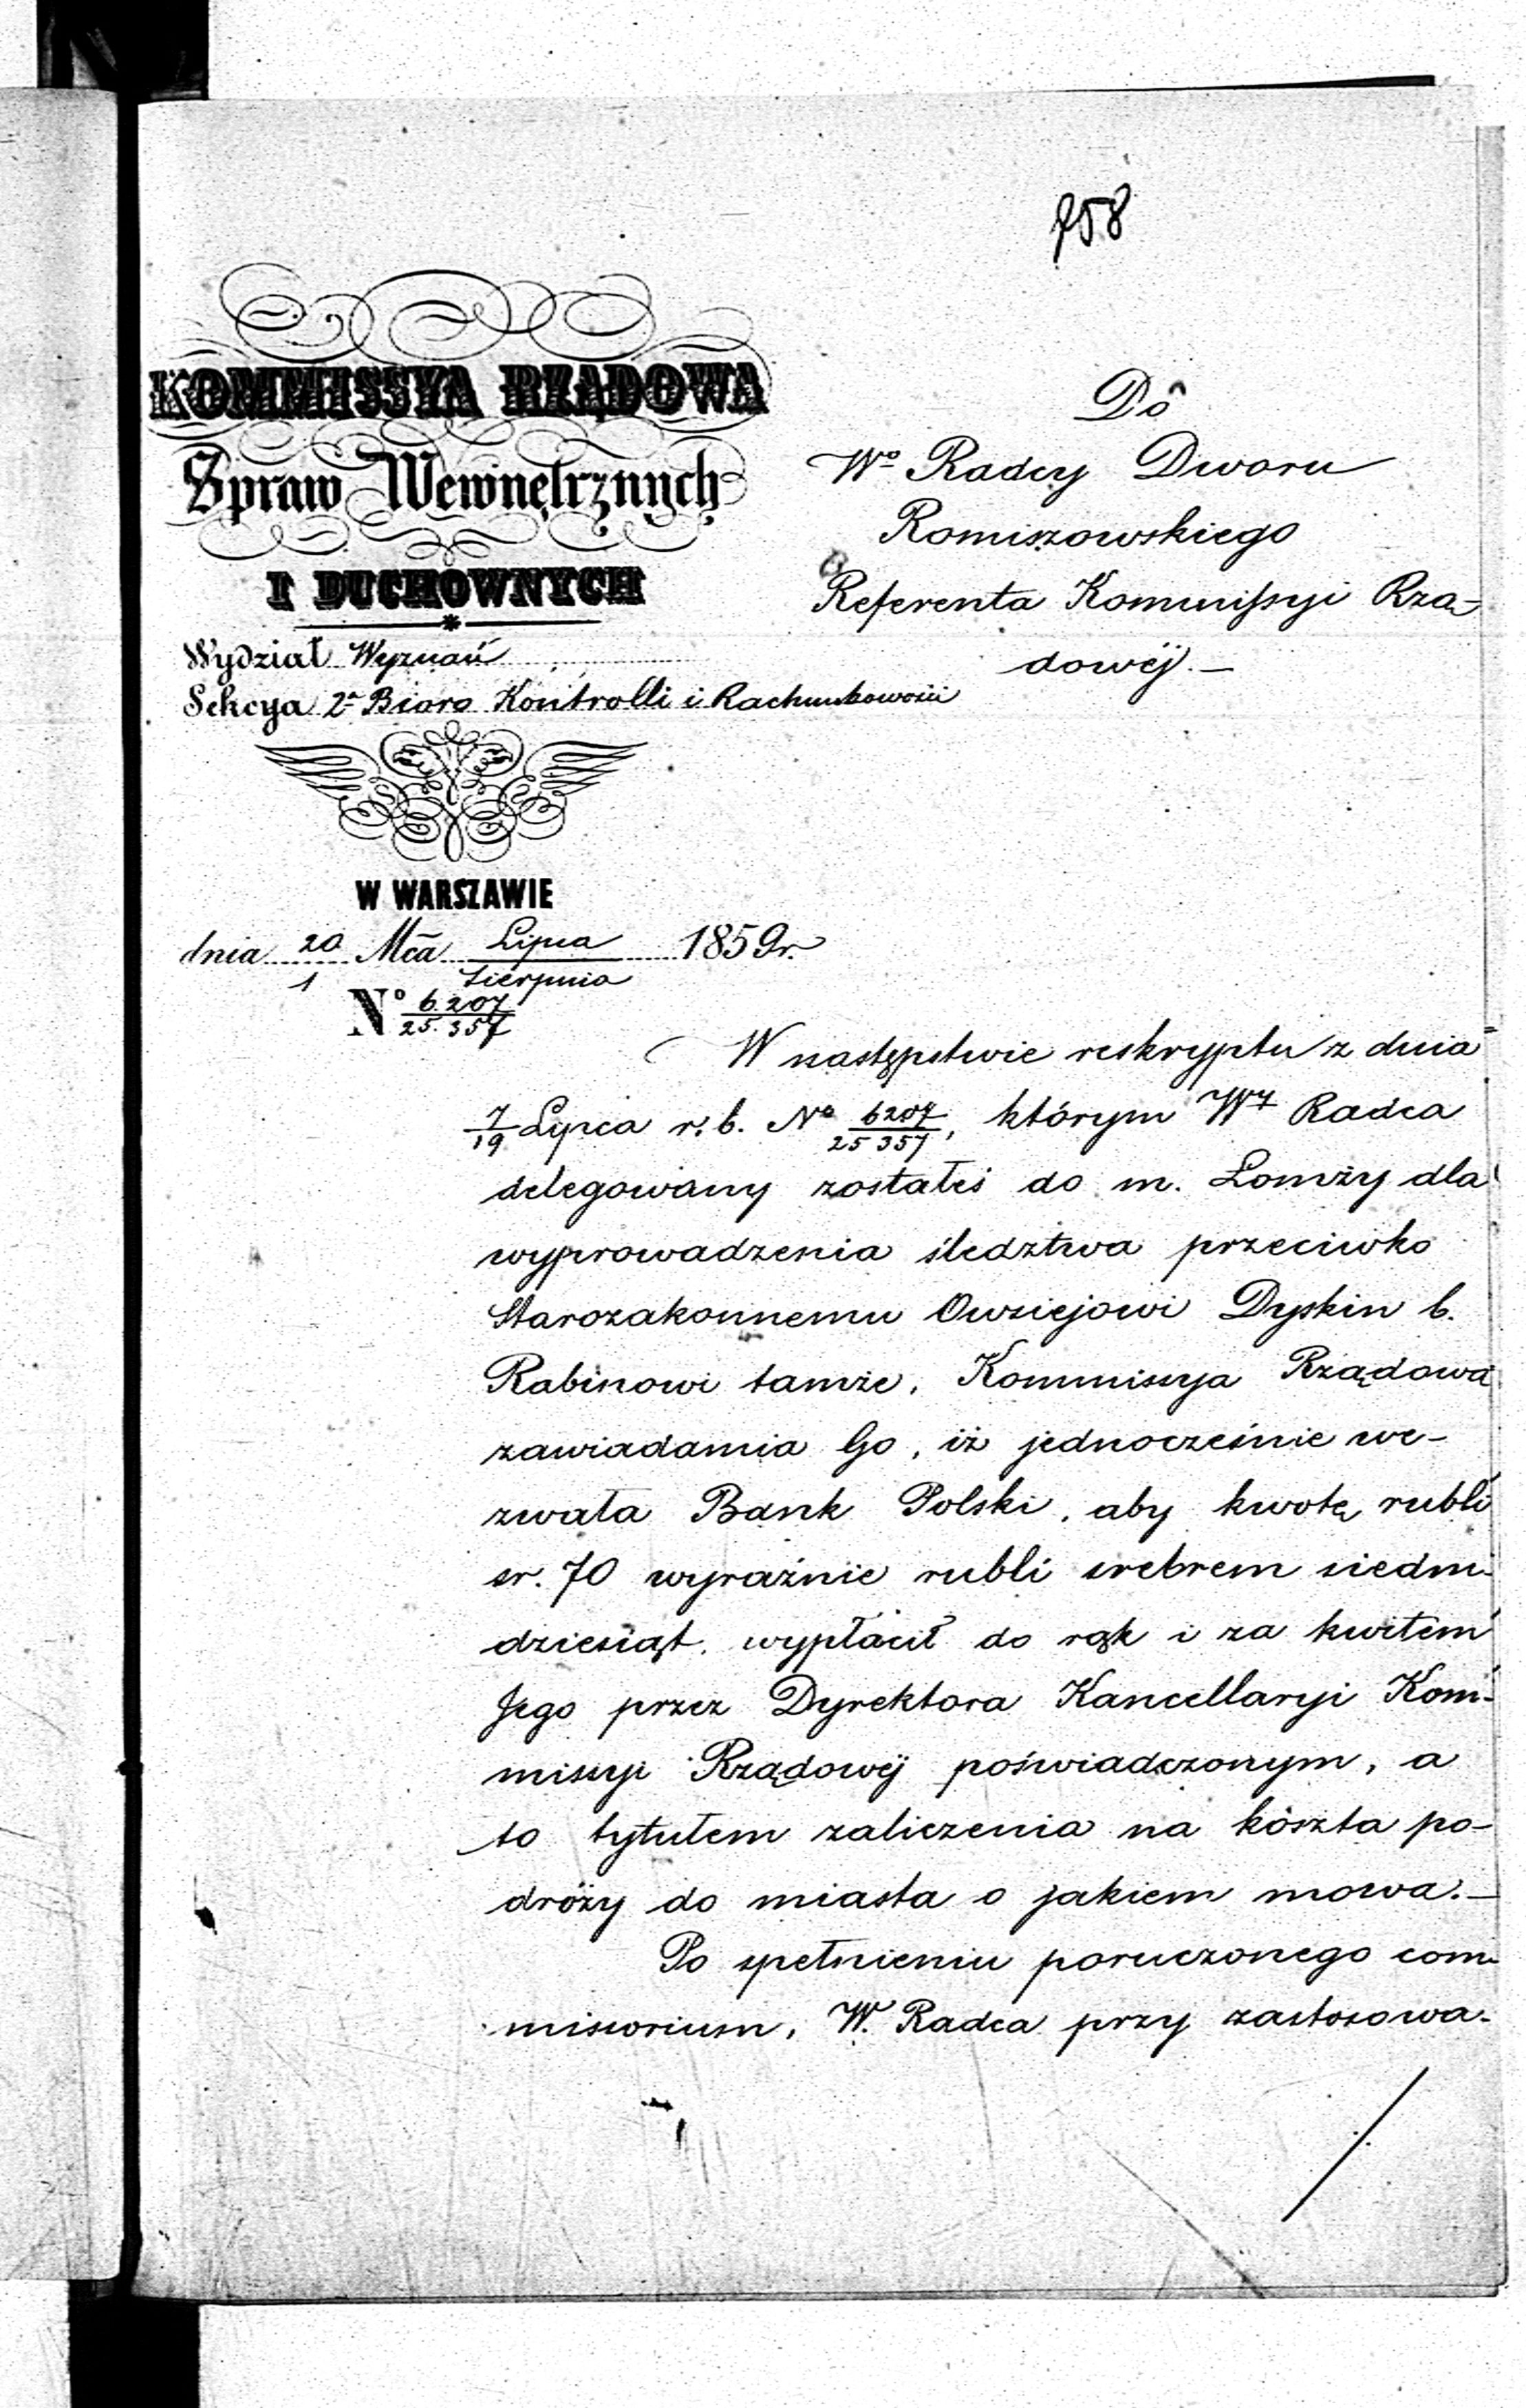 758
KOMMISSYA RZĄDOWA
Spraw Wewnętrznych
I DUCHOWNYCH
Wydział Wyznań
Sekcya 2a Biuro Kontrolli i Rachunkowości
W WARSZAWIE
dnia 20/1 Mca Lipca/Sierpnia 1859 r.
No 6.207/25.357
Do
Wo Radcy Dworu
Romiszowskiego
Referenta Kommissyi Rzą-
dowéj.—
W następstwie reskryptu z dnia
7/19 Lipca r. b. No 6207/25357, którym Wy Radca
delegowany zostałeś do m. Łomży dla
wyprowadzenia śledztwa przeciwko
Starozakonnemu Owsiejowi Dyskin b.
Rabinowi tamże, Kommissya Rządowa
zawiadamia Go, iż jednocześnie we-
zwała Bank Polski, aby kwotę rubli
sr. 70 wyraźnie rubli srebrem siedm-
dziesiąt, wypłacił do rąk i za kwitem
Jego przez Dyrektora Kancellaryi Kom-
missyi Rządowéj poświadczonym, a
to tytułem zaliczenia na koszta po-
dróży do miasta o jakiem mowa.—
Po spełnieniu poruczonego com-
missorium, W. Radca przy zastosowa-
./.